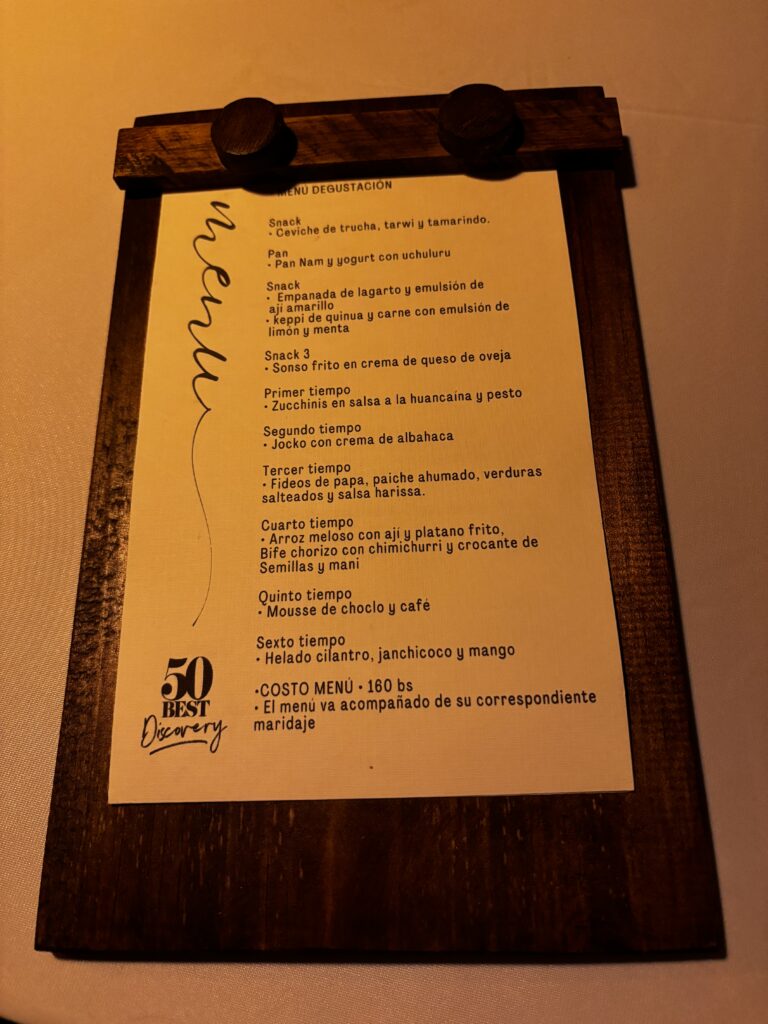 menu
MENÚ DEGUSTACIÓN
Snack
• Ceviche de trucha, tarwi y tamarindo.
Pan
• Pan Nam y yogurt con uchuluru
Snack
• Empanada de lagarto y emulsión de
ají amarillo
• keppi de quinua y carne con emulsión de
limón y menta
Snack 3
• Sonso frito en crema de queso de oveja
Primer tiempo
• Zucchinis en salsa a la huancaína y pesto
Segundo tiempo
• Jocko con crema de albahaca
Tercer tiempo
• Fideos de papa, paiche ahumado, verduras
salteados y salsa harissa.
Cuarto tiempo
• Arroz meloso con ají y platano frito,
Bife chorizo con chimichurri y crocante de
Semillas y mani
Quinto tiempo
• Mousse de choclo y café
Sexto tiempo
• Helado cilantro, janchicoco y mango
•COSTO MENÚ • 160 bs
• El menú va acompañado de su correspondiente
maridaje
50
BEST
Discovery